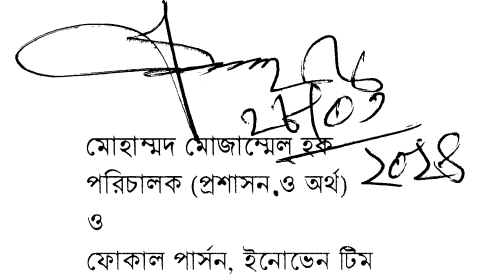 মোহাম্মদ মোজাম্মেল হক
পরিচালক (প্রশাসন ও অর্থ)
ও
ফোকাল পার্সন, ইনোভেন টিম